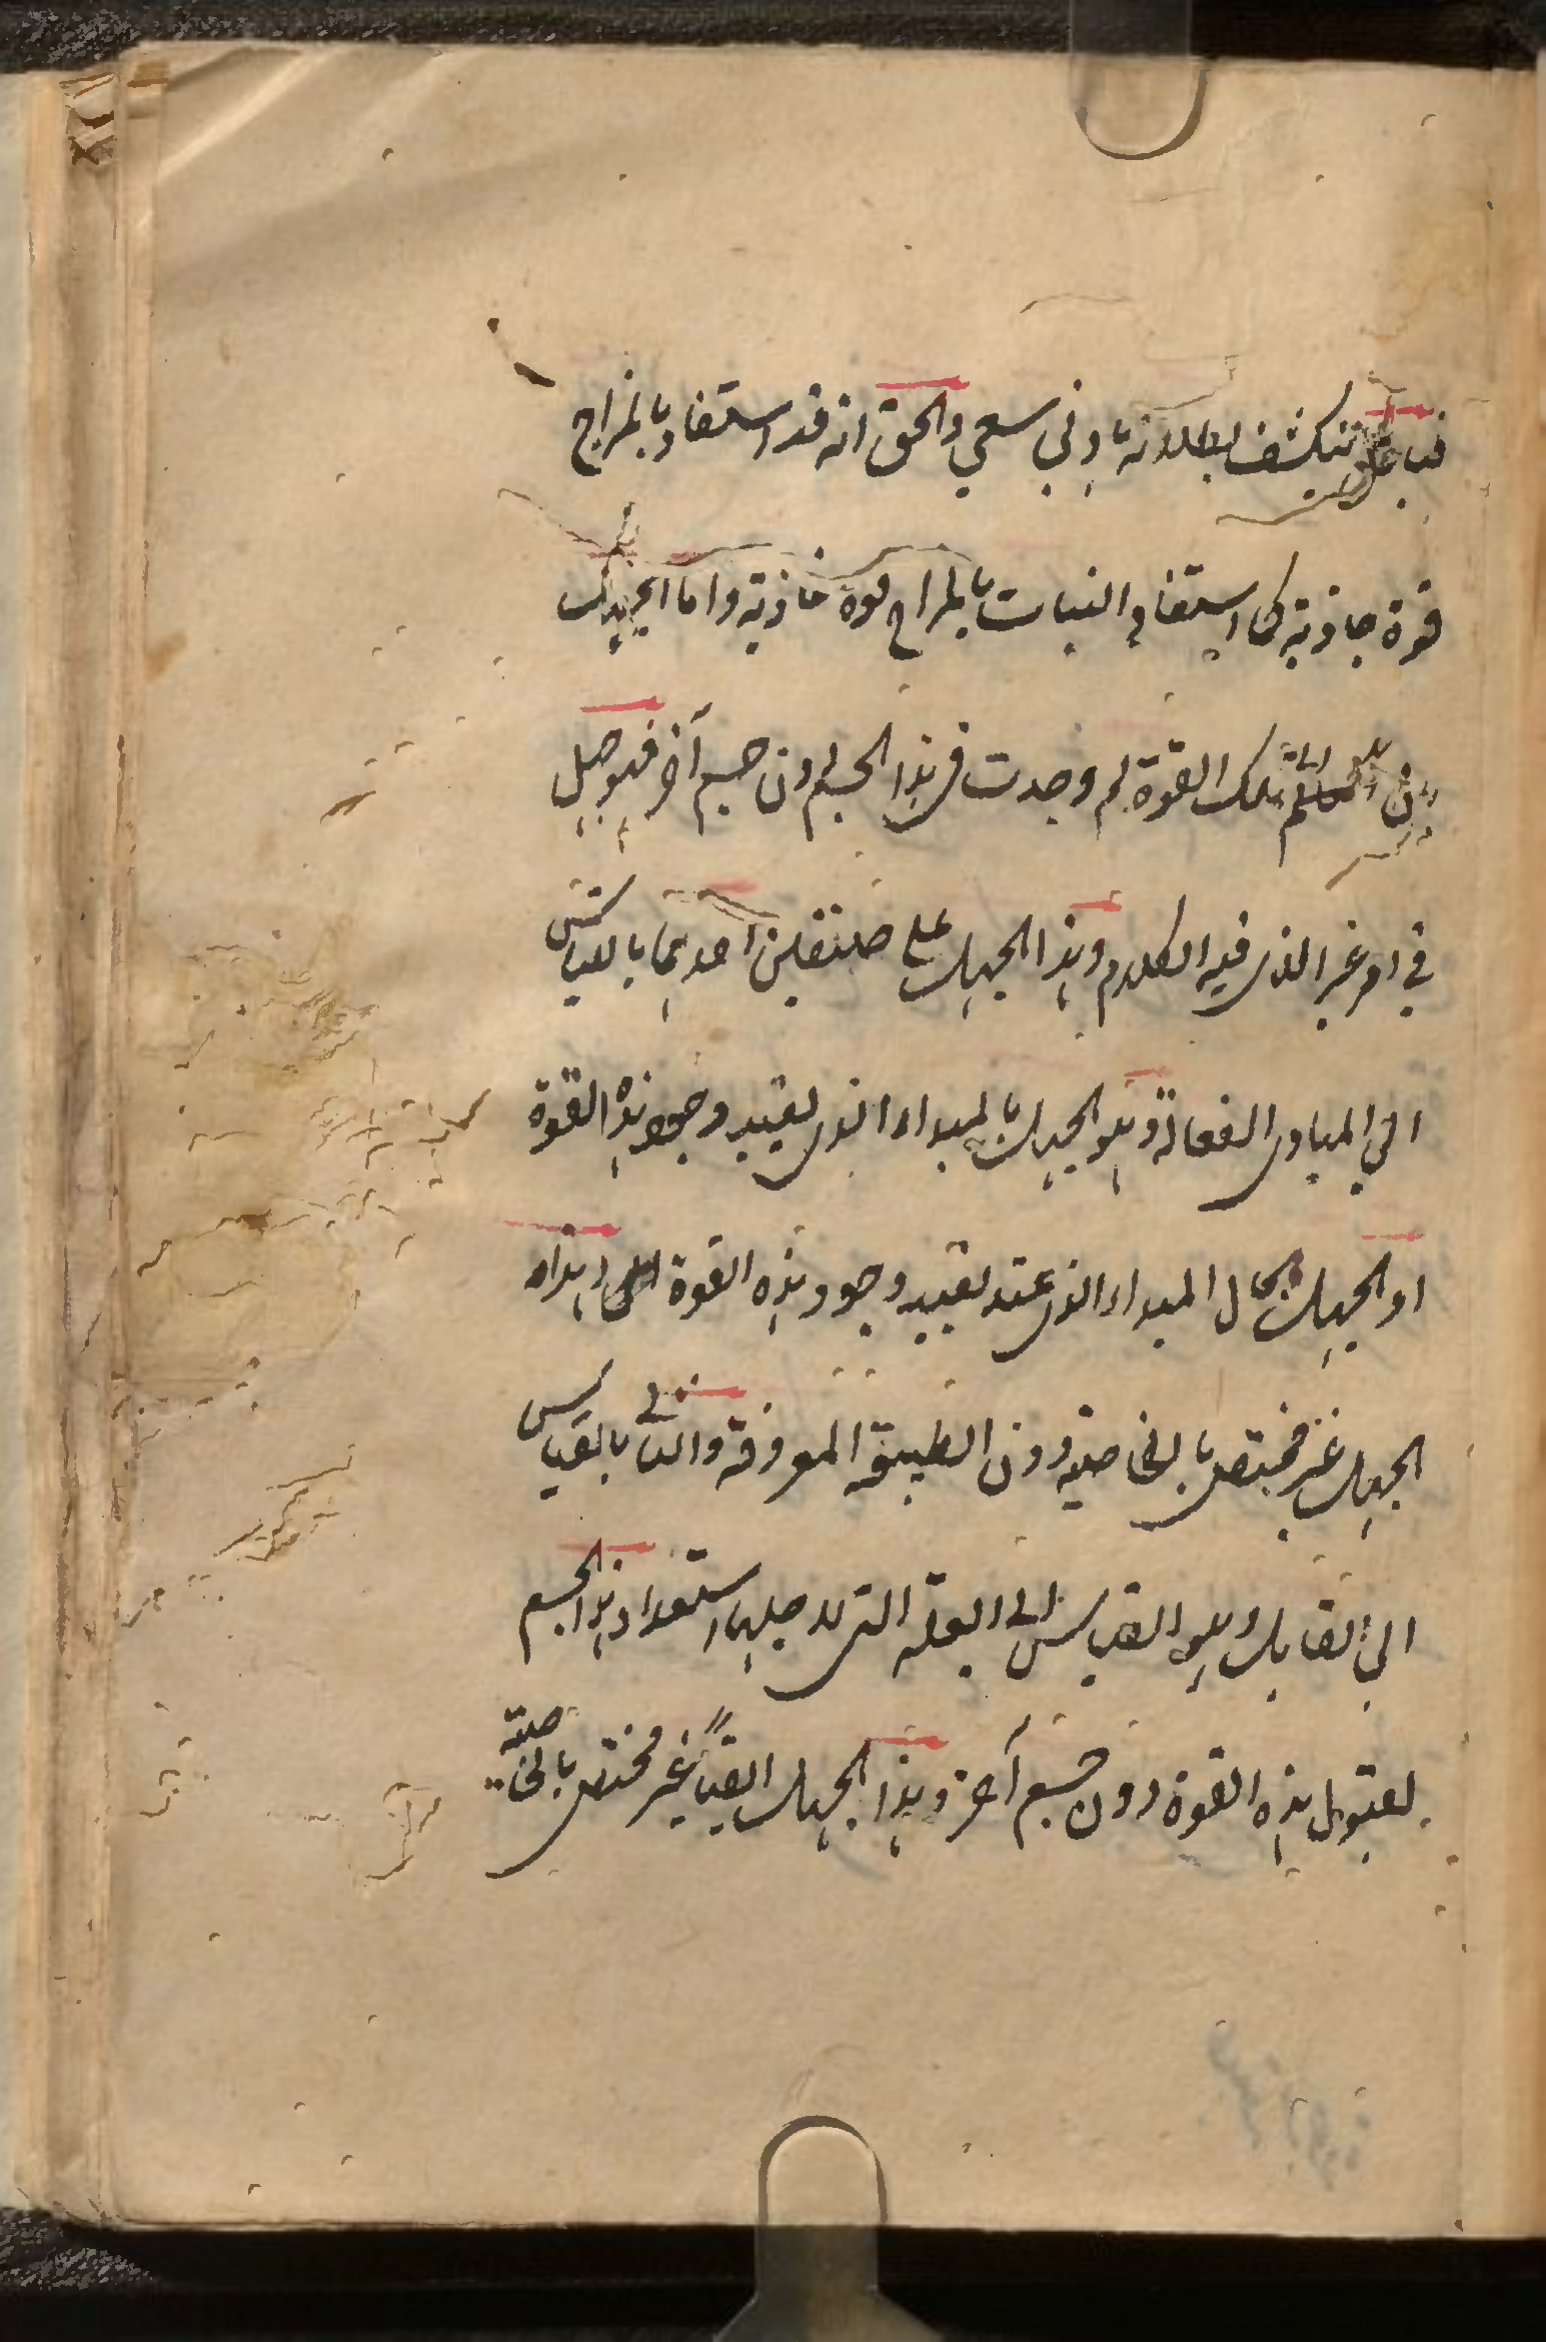 فباطل تنكشف بطلانه بادنى سعي والحق انه قد استفاد بالمزاج
قوة جاذبة كما استفاد النبات بالمزاج قوة غاذية واما الجهل
بان تلك القوة لم وجدت في هذا الجسم دون جسم آخر فهو جهل
في امر غير الذي فيه الكلام وهذا الجهل على صنفين احدهما بالقياس
الى المبادى الفعالة وهو الجهل بالمبداء الذي يفيد وجود هذه القوة
او الجهل بحال المبداء الذي عنه يفيد وجود هذه القوة وهذا
الجهل غير مختص بالخاصية دون الطبيعة المعروفة والثاني بالقياس
الى القابل وهو القياس الى العلة التي لاجلها استعداد هذا الجسم
لقبول هذه القوة دون جسم آخر وهذا الجهل ايضا غير مختص بالخاصية